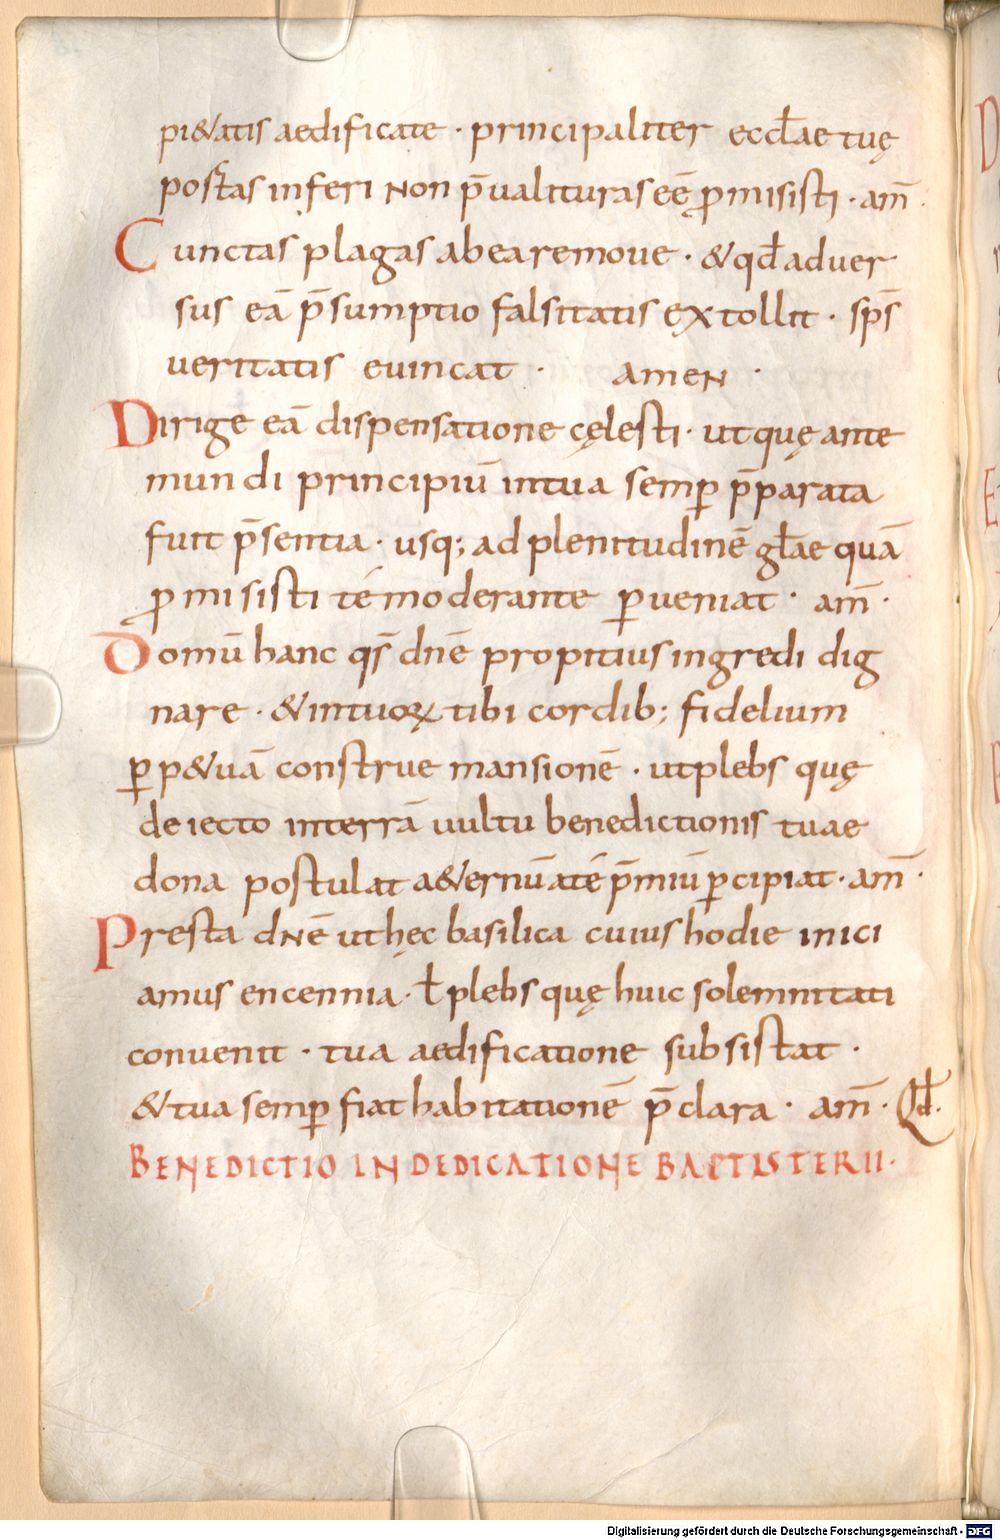 pi&atis aedificate · principaliter eccl̄ae tuę
postas inferi non p̄ualituras eē p̱misisti · am̄ ·
Cunctas plagas ab ea remoue · & qd̄ aduer
sus eā p̄sumptio falsitatis extollit · sp̄s
ueritatis euincat · amen ·
Dirige eā dispensatione cęlesti · ut quę ante
mundi principiū in tua semp̱ p̄parata
fuit p̄sentia · usq; ad plenitudinē gl̄ae quā
p̱misisti té moderante p̱ueniat · am̄ ·
Domū hanc qs̄ dn̄e propitius ingredi dig
nare · & in tuoꝝ tibi cordib; fidelium
p̱p&uā construe mansionē · ut plebs quę
deiecto in terrā uultu benedictionis tuae
dona postulat a&ernū a té p̄miū p̱cipiat · am̄ ·
Presta dn̄e ut hęc basilica cuius hodie inici
amus encennia · ł plebs quę huic solemnitati
conuenit · tua aedificatione subsistat ·
& tua semp̱ fiat habitationē p̄clara · am̄ · Qd̄ ·
BENEDICTIO IN DEDICATIONE BAPTISTERII ·
Digitalisierung gefördert durch die Deutsche Forschungsgemeinschaft - DFG